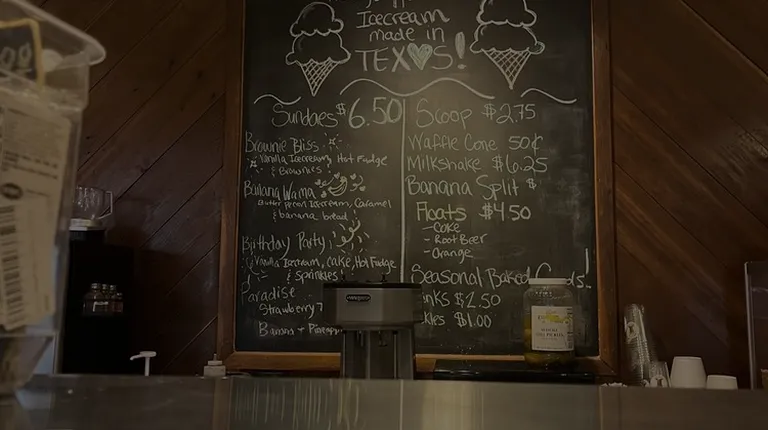 Icecream
made in
TEX♥S!
Sundaes $6.50
Brownie Bliss
Vanilla Icecream, Hot Fudge
& Brownies
Banana Wama
Butter Pecan Icecream, Caramel
& banana bread
Birthday Party
Vanilla Icecream, cake, Hot Fudge
& Sprinkles
Paradise
Strawberry
Banana +
Scoop $2.75
Waffle Cone 50¢
Milkshake $6.25
Banana Split $
Floats $4.50
- Coke
- Root Beer
- Orange
Seasonal Baked
$2.50
$1.00